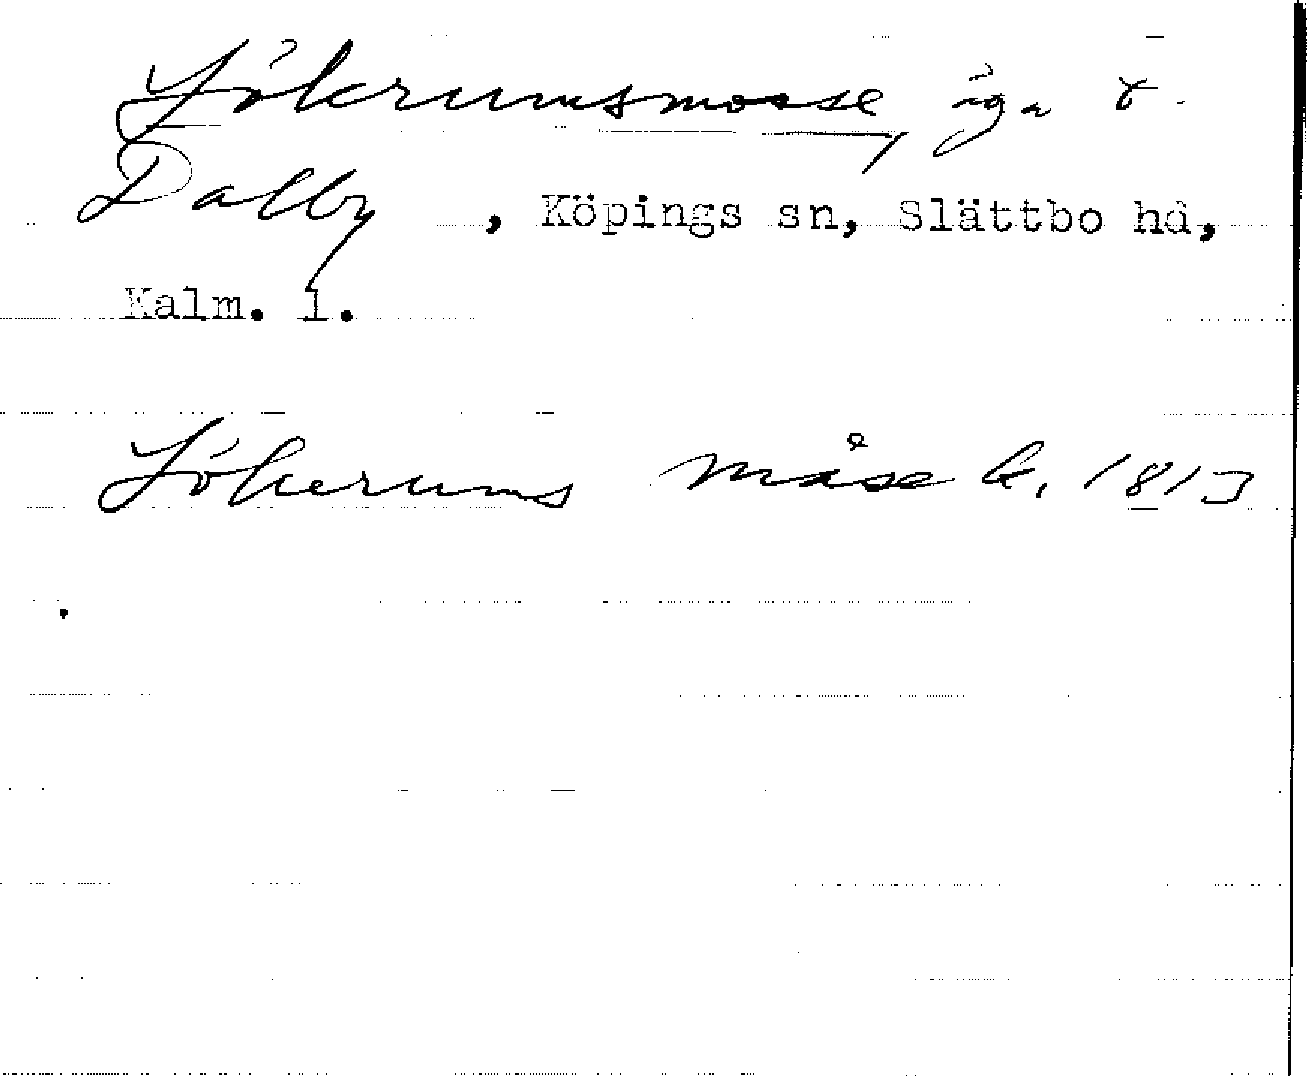 Lökrumsmosse, äga t.
Dalby, Köpings sn, Slättbo hd,
Kalm. l.
Lökerums måse k. 1813